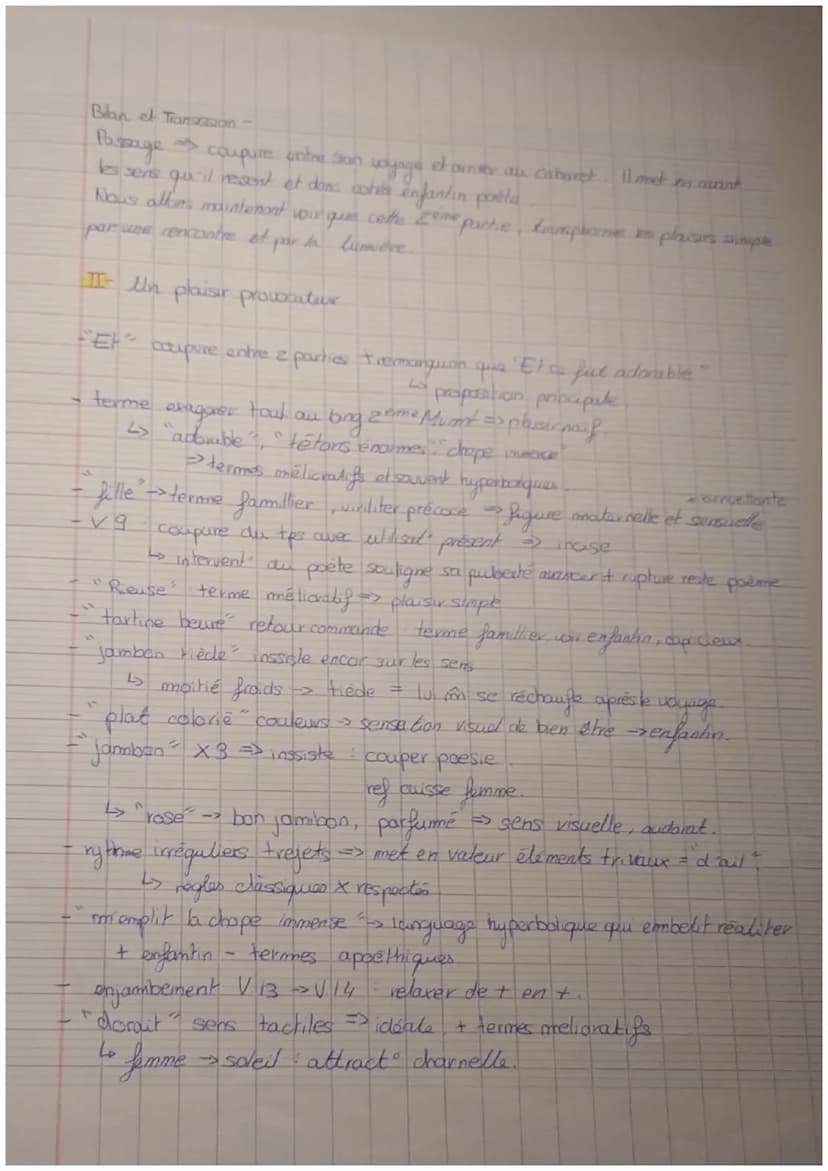 Bilan et Transission -
Passage => coupure entre son voyage et arriver au Cabaret. Il met en avant
les sens qu'il resent et donc cotés enfantin poète.
Nous allons maintenant voir que cette 2ème partie, les plaisirs simple
par une rencontre et par la lumière.
II- Un plaisir provocateur
- "Et" coupure entre 2 parties + remarquon que "Et ce fut adorable"
↳ proposition principale
- terme exagerer tout au long 2ème Mvmt => plus naif.
↳ "adorable", "tétons énormes" "chope immense"
=> termes mélioratifs et souvent hyperboliques.
- "fille" -> terme famillier, viriliter précoce => figure maternelle et sensuelle
- V9 : coupure du tps avec utilisat° présent => incise
↳ intervent° du poète souligne sa puberté avancer + rupture reste poème
- "Rieuse" terme mélioratif => plaisir simple
- "tartine beuré" retour commande terme famillier voir enfantin, capricieux
- "jambon tiède" inssiste encor sur les sens
↳ moitié froids -> tiède = lui m̂ se réchauffe après le voyage
- "plat colorié" couleurs -> sensation visuel de bien être -> enfantin.
- "jambon" x3 => inssiste : couper poesie.
ref cuisse femme.
↳ "rose" -> bon jambon, parfumé => sens visuelle, audorat.
- rythme irréguliers + rejets => met en valeur éléments triviaux = "d'ail"
↳ règles classiques x respectés
- "m'emplit la chope immense" -> language hyperbolique qui embelit réaliter
+ enfantin - termes apoéthiques
- enjambement V13 -> V.14 : relaxer de + en +.
- "dorait" sens tactiles => idéale + termes melidratifs
↳ femme -> soleil : attract° charnelle.